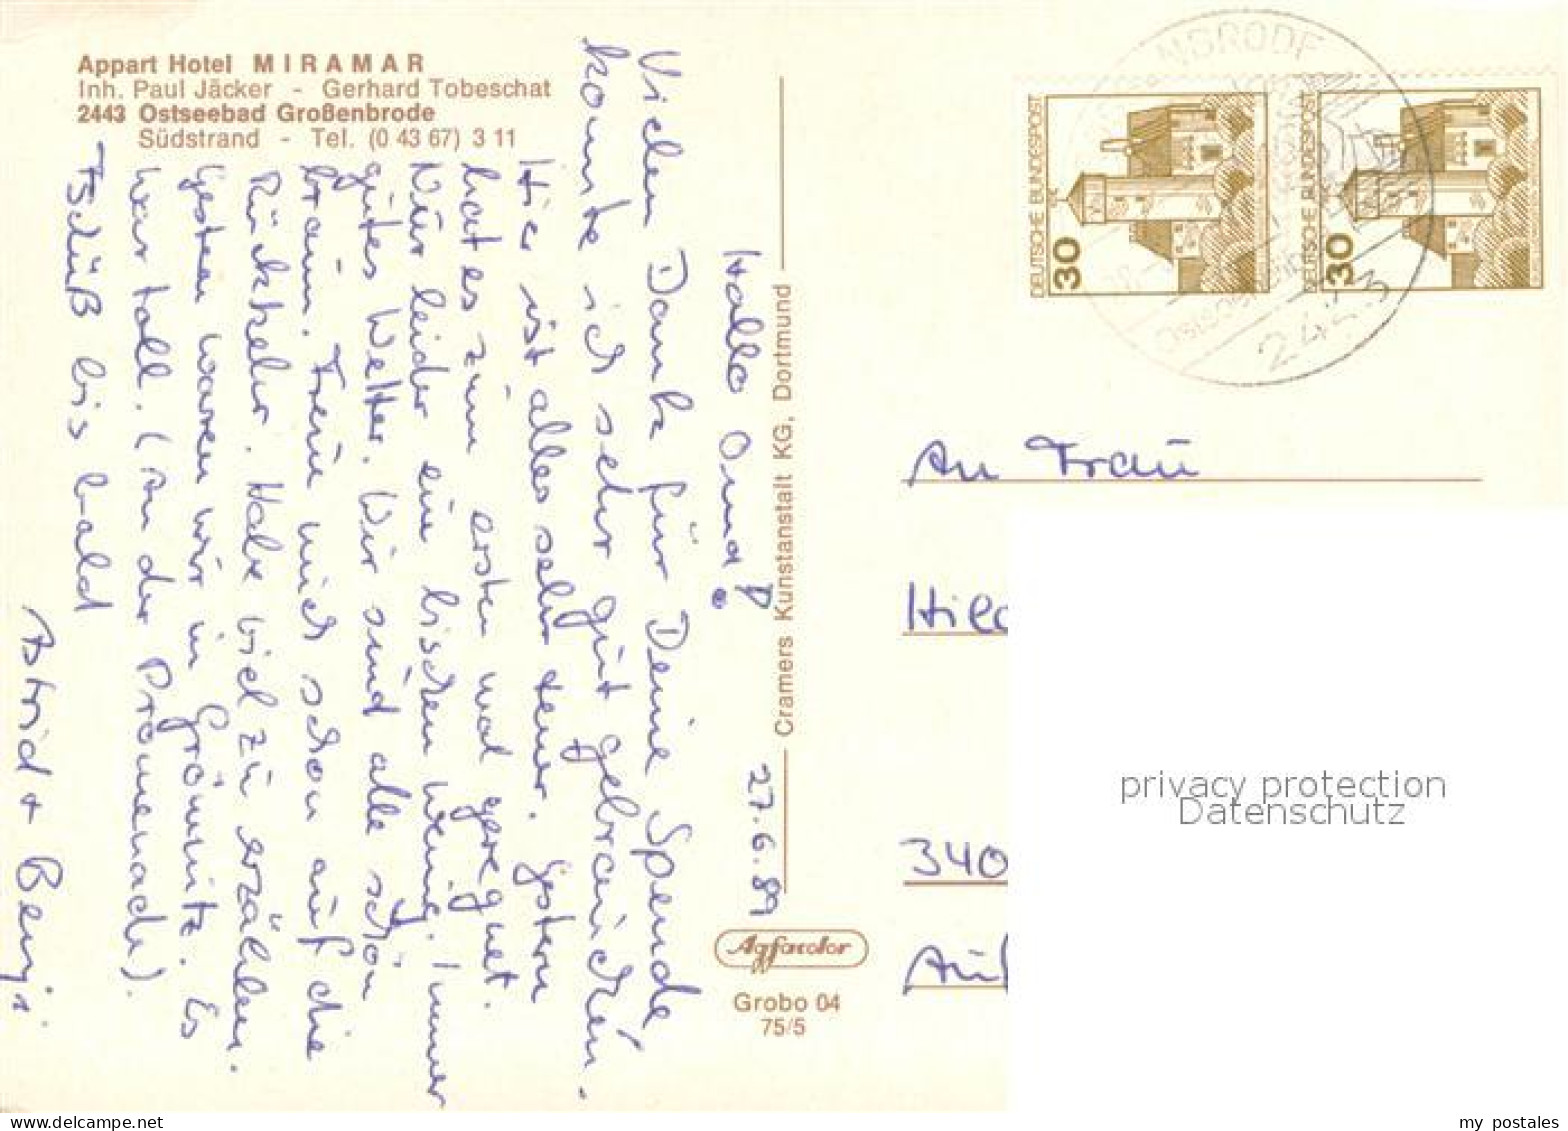 Appart Hotel MIRAMAR
Inh. Paul Jäcker - Gerhard Tobeschat
2443 Ostseebad Großenbrode
Südstrand - Tel. (0 43 67) 3 11
27.6.89
Hallo Oma!
Vielen Dank für Deine Spende
konnte ich sehr gut gebrauchen.
Hier ist alles sehr teuer. Gestern
hat es zum ersten mal geregnet.
Nur leider ein bischen wenig. Immer
gutes Wetter. Wir sind alle schön
braun. Freue mich schon auf die
Rückkehr. Habe viel zu erzählen.
Gestern waren wir in Grömnitz. Es
war toll. (An der Promenade).
Tschüß bis bald
Astrid + Benji.
Cramers Kunstanstalt KG, Dortmund
Agfacolor
Grobo 04
75/5
DEUTSCHE BUNDESPOST
30
DEUTSCHE BUNDESPOST
30
NBRODE
2443
An Frau
Hild
340
privacy protection
Datenschutz
www.delcampe.net
my_postales